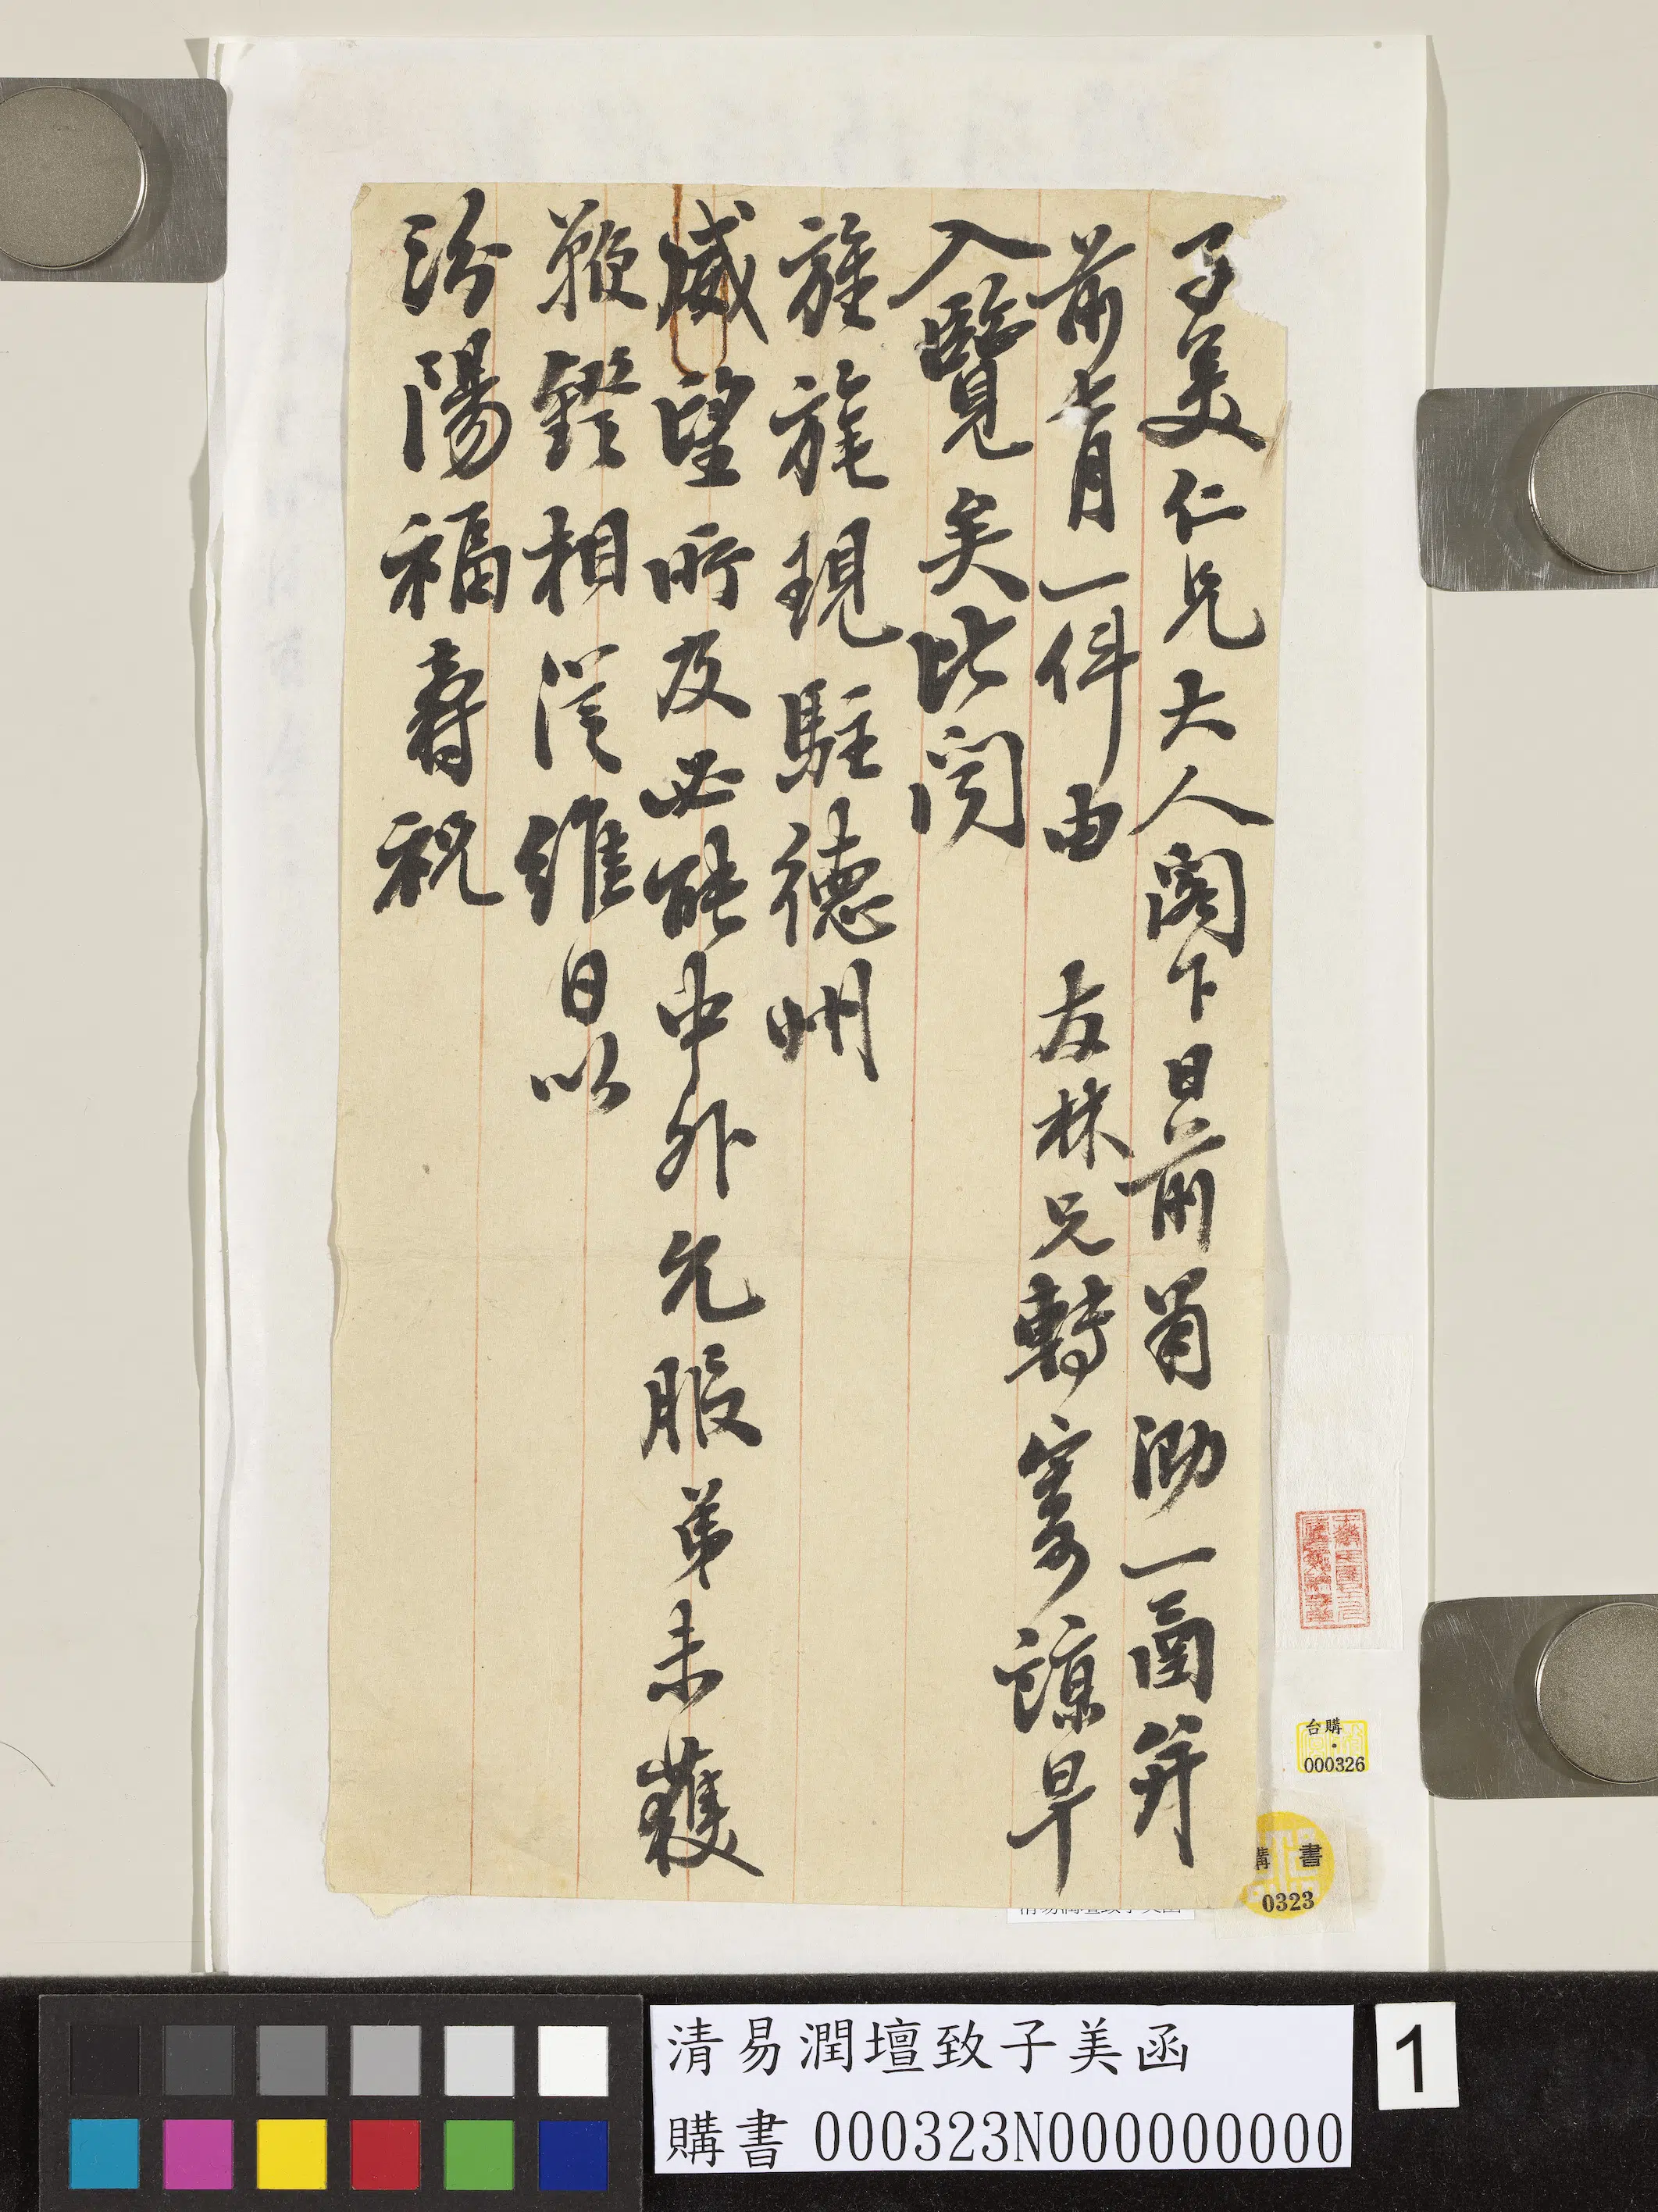 子美仁兄大人閣下日前肅泐一函并
前七月一件由 友林兄轉寄諒早
入覽矣比閱
旌旄現駐德州
威望所及必能中外允服弟未獲
鞭鐙相從維日以
汾陽福壽祝
台購
000326
購書
0323
清易潤壇致子美函
購書 000323N000000000
1